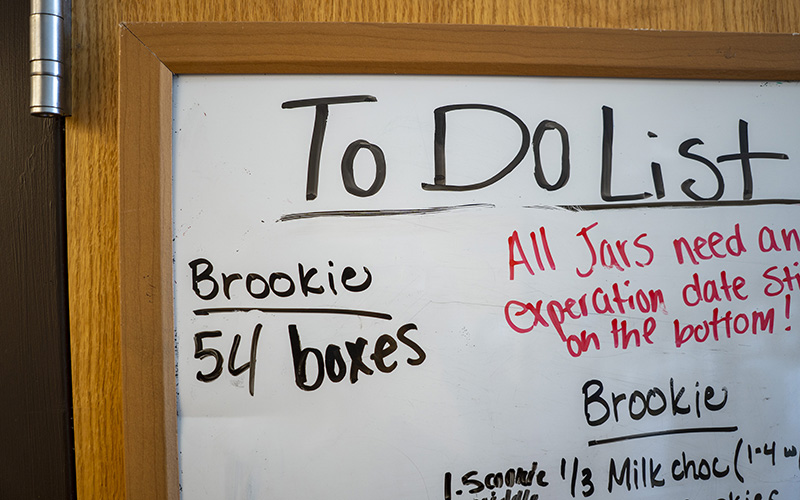 To Do List
Brookie
54 boxes
All Jars need an
experation date sti
on the bottom!
Brookie
1/3 Milk choc (1-4 w